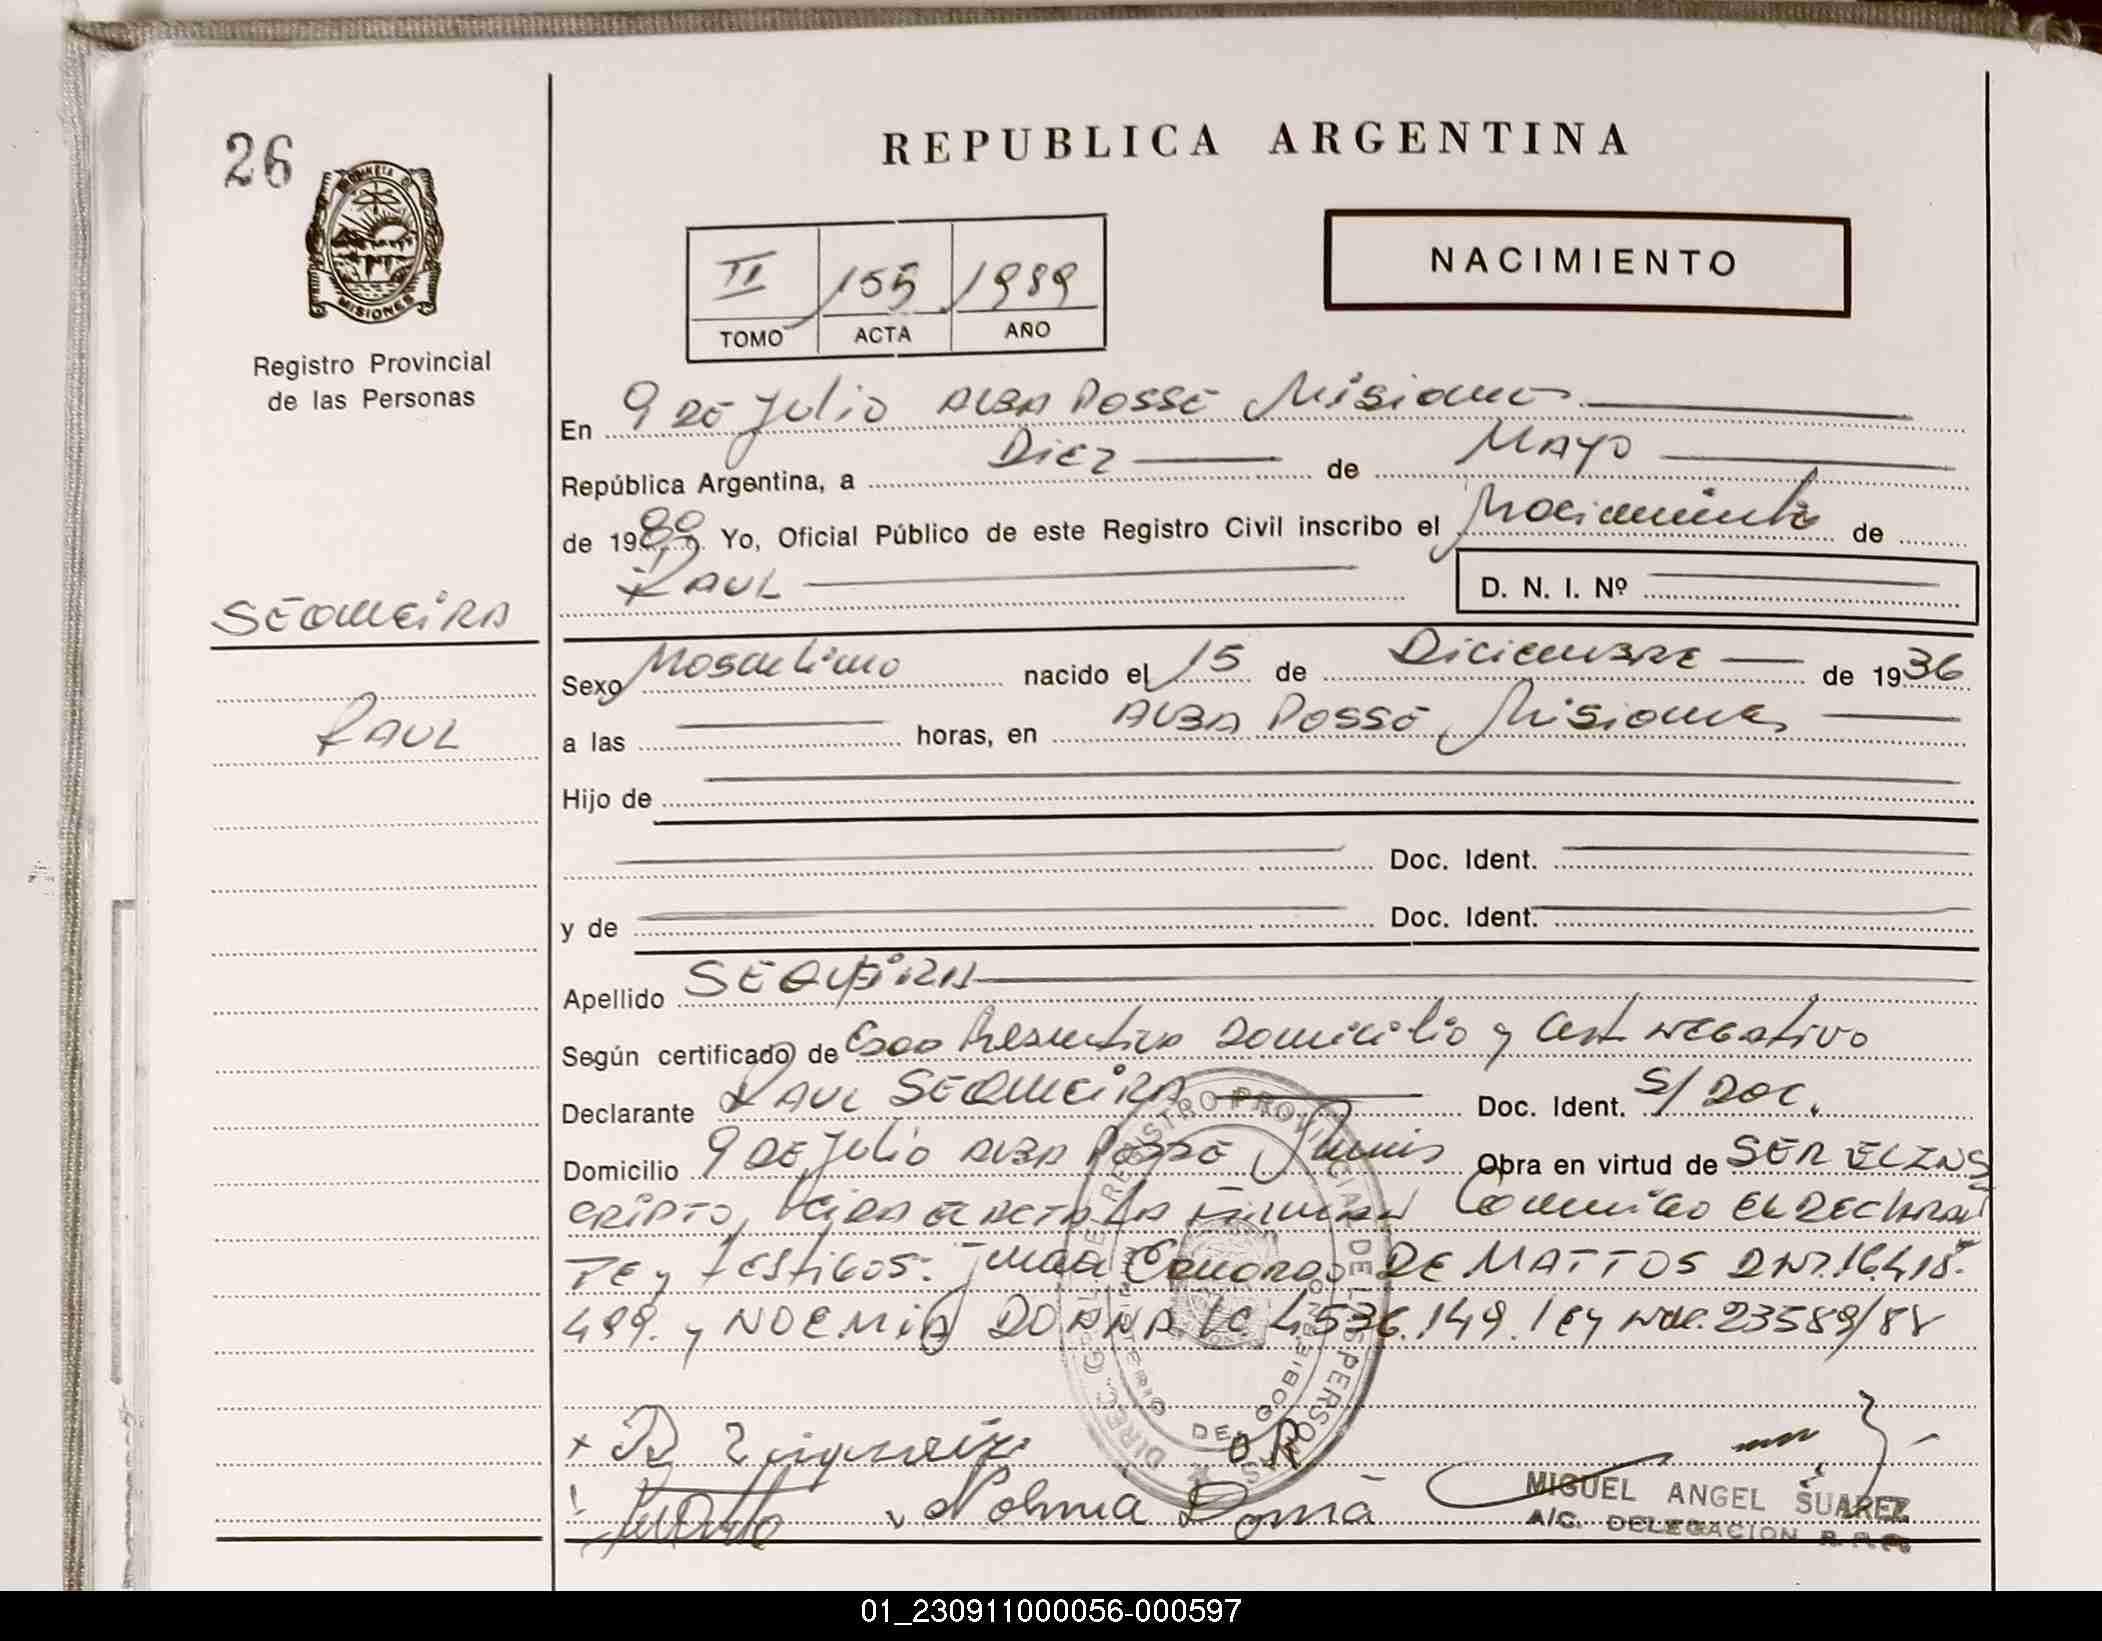 26
REPUBLICA ARGENTINA
PROVINCIA D
MISIONES
Registro Provincial
de las Personas
II 155 1989
TOMO ACTA AÑO
NACIMIENTO
En 9 DE Julio ALBA POSSE Misiones
República Argentina, a Diez de Mayo
de 1989 Yo, Oficial Público de este Registro Civil inscribo el Nacimiento de
RAUL
D. N. I. Nº
SEQUEIRA
RAUL
Sexo Masculino nacido el 15 de Diciembre de 1936
a las horas, en ALBA POSSE Misiones
Hijo de
Doc. Ident.
y de Doc. Ident.
Apellido SEQUEIRA
Según certificado de Domicilio y Cert NEGativo
Declarante RAUL SEQUEIRA Doc. Ident. S/ DOC.
Domicilio 9 DE Julio ALBA POSSE Mnes Obra en virtud de SER REINS
CRIPTO, LEIDA EL ACTA LA FIRMAN Conmigo EL DECLARAN
TE y testigos: Juan Conorado DE MATTOS DNI. 16.418.
499. y NOEMIA DORNA LC 4.536.149. Ley Nac. 23589/88
DIREC. GRAL. DE REGISTRO PROVINCIAL DE LAS PERSONAS
MINISTERIO DE GOBIERNO
Nohmia Dorná
MIGUEL ANGEL SUAREZ
A/C. DELEGACION R. P. P.
01_230911000056-000597